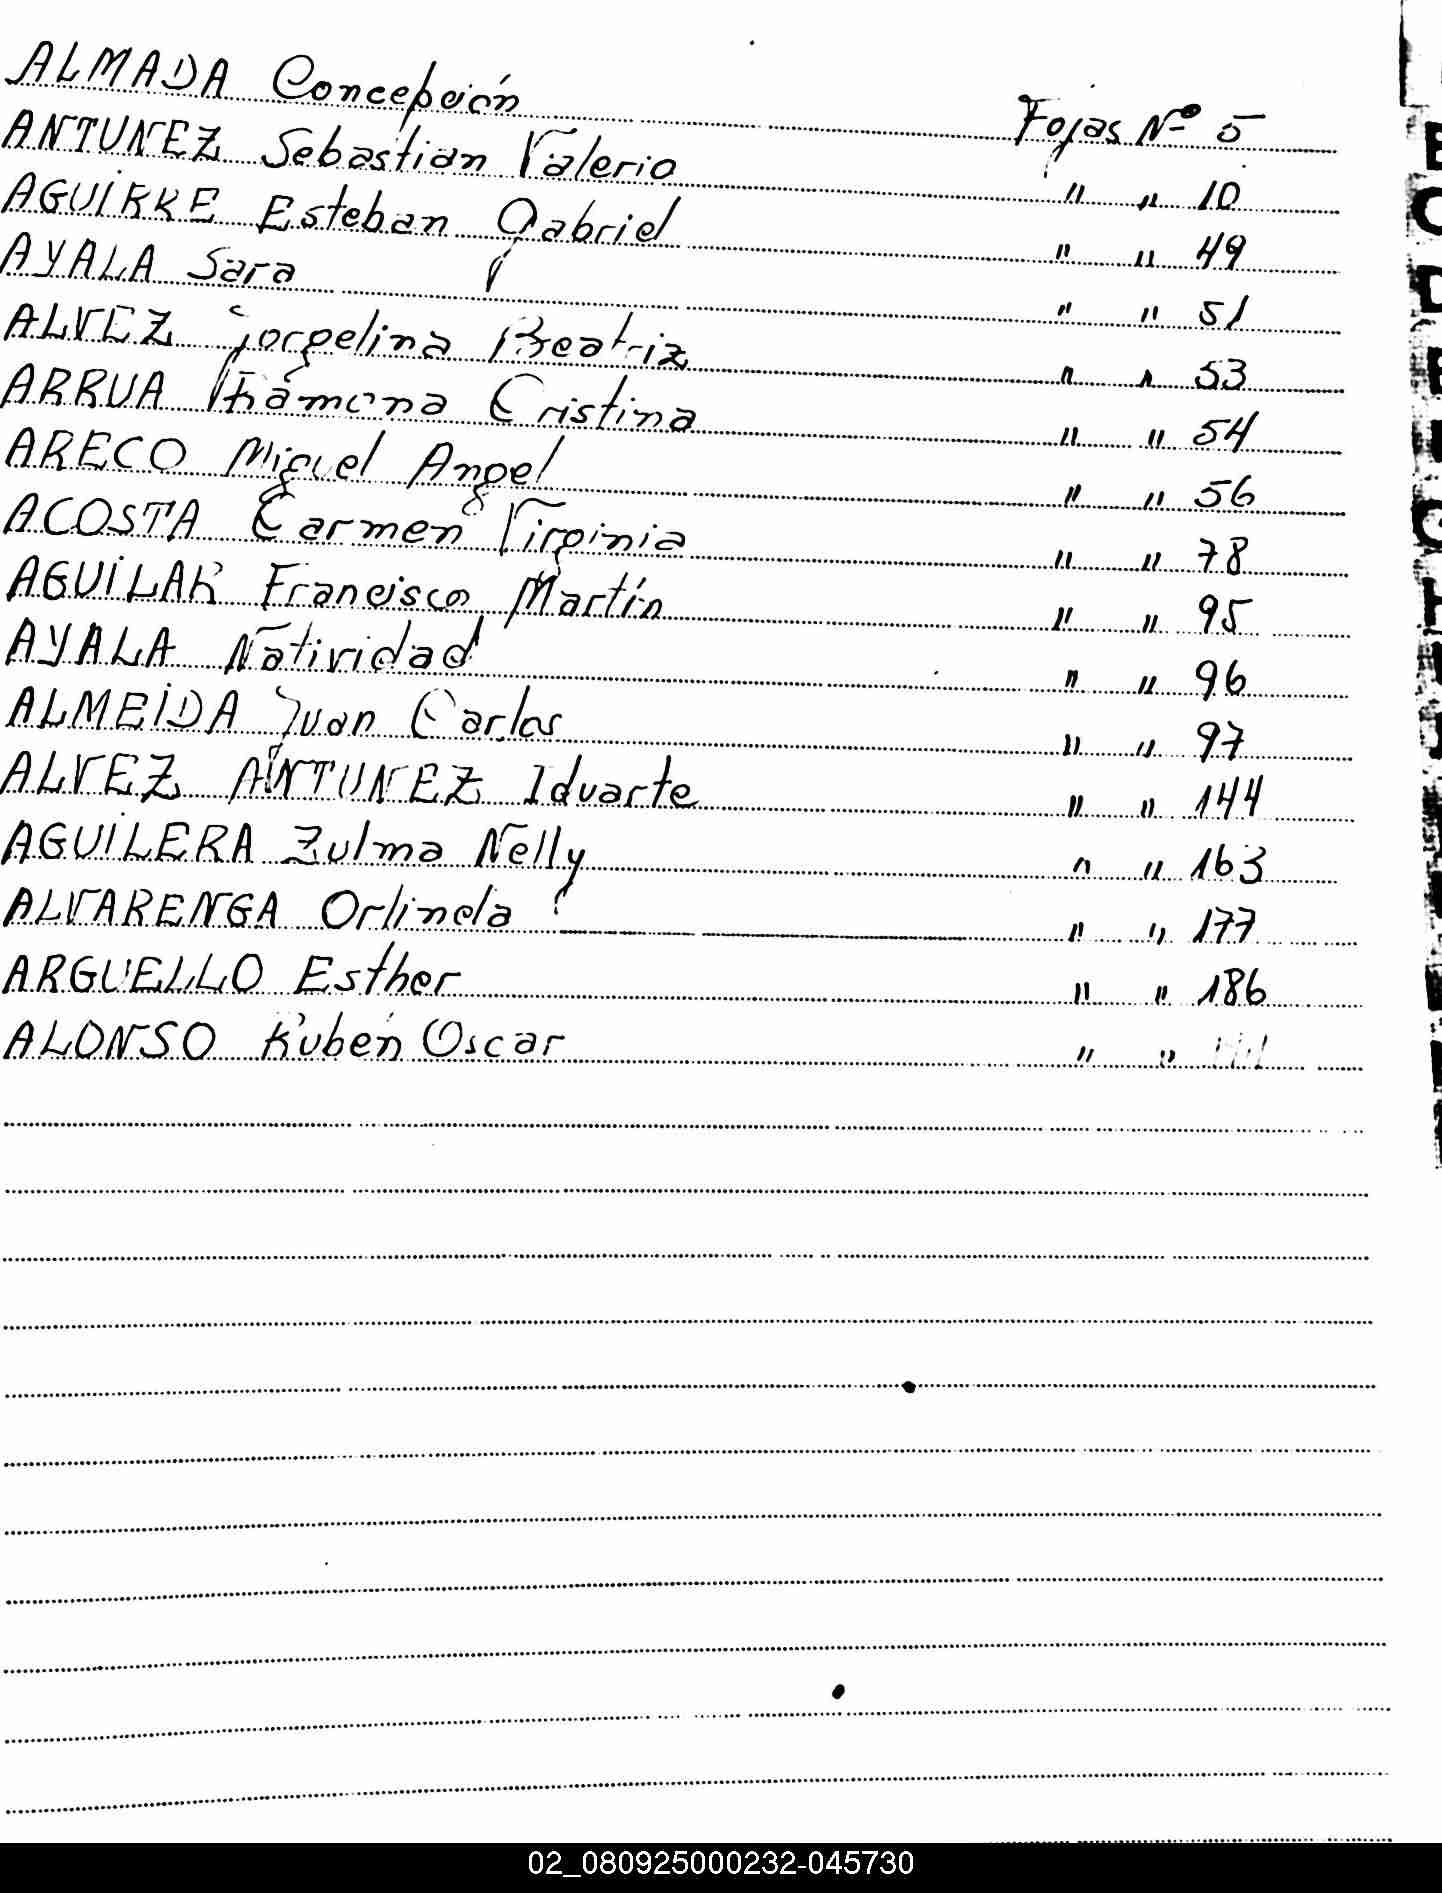 ALMADA Concepción Fojas Nº 5
ANTUNEZ Sebastian Valerio " " 10
AGUIRRE Esteban Gabriel " " 49
AYALA Sara " " 51
ALVEZ Jorgelina Beatriz " " 53
ARRUA Ramona Cristina " " 54
ARECO Miguel Angel " " 56
ACOSTA Carmen Virginia " " 78
AGUILAR Francisco Martín " " 95
AYALA Natividad " " 96
ALMEIDA Juan Carlos " " 97
ALVEZ ANTUNEZ Iduarte " " 144
AGUILERA Zulma Nelly " " 163
ALVARENGA Orlinda " " 177
ARGUELLO Esther " " 186
ALONSO Rubén Oscar " "
A B C D E F G H I J
02_080925000232-045730